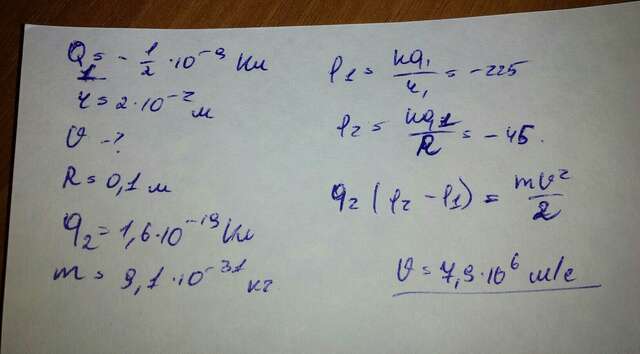 Q₁ = - 1/2 · 10⁻⁹ Кл
r = 2 · 10⁻² м
υ - ?
R = 0,1 м
q₂ = 1,6 · 10⁻¹⁹ Кл
m = 9,1 · 10⁻³¹ кг
φ₁ = kq₁/r₁ = -225
φ₂ = kq₁/R = -45.
q₂ (φ₂ - φ₁) = mυ²/2
υ = 7,9 · 10⁶ м/с